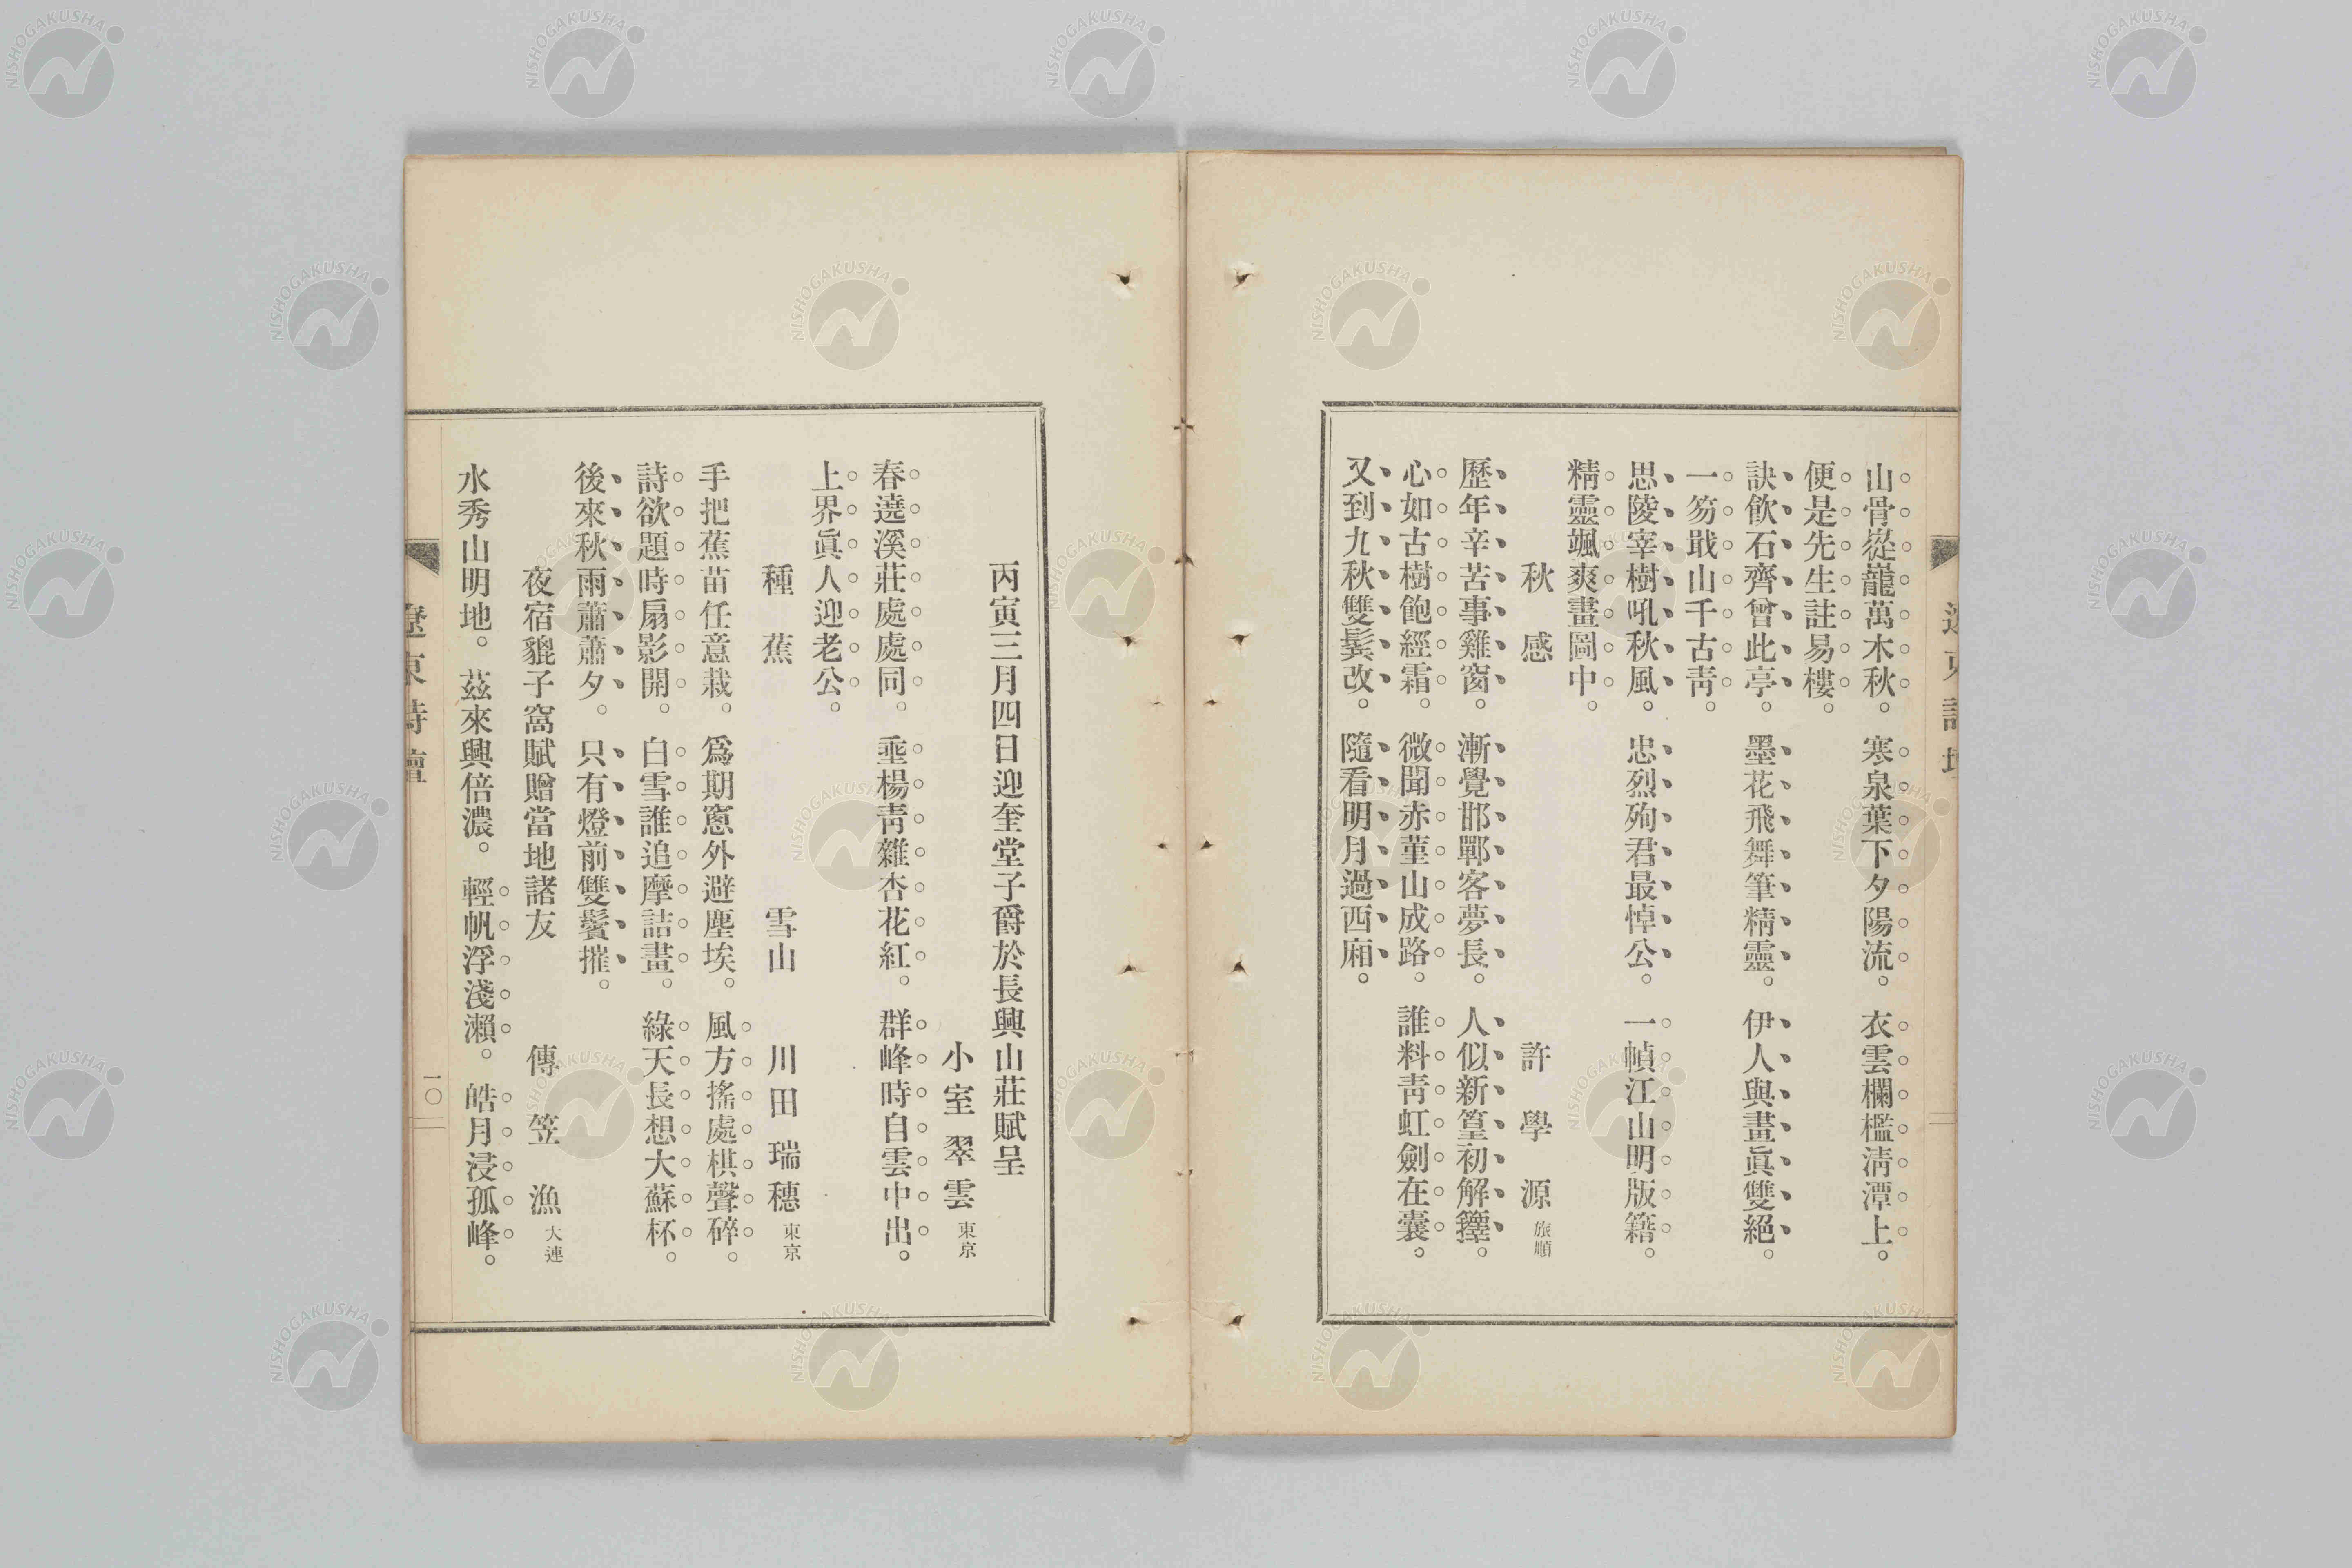 山骨嵸巃萬木秋。寒泉葉下夕陽流。衣雲欄檻淸潭上。
便是先生註易樓。
訣飮石齊曾此亭。墨花飛舞筆精靈。伊人與畫眞雙絕。
一笏戢山千古靑。
思陵宰樹吼秋風。忠烈殉君最悼公。一幀江山明版籍。
精靈颯爽畫圖中。
秋感 許學源 旅順
歷年辛苦事雞窗。漸覺邯鄲客夢長。人似新篁初解籜。
心如古樹飽經霜。微聞赤堇山成路。誰料靑虹劍在囊。
又到九秋雙鬂改。隨看明月過西廂。
丙寅三月四日迎奎堂子爵於長興山莊賦呈
小室翠雲 東京
春遶溪莊處處同。埀楊靑雜杏花紅。群峰時白雲中出。
上界眞人迎老公。
種蕉 雪山 川田瑞穗 東京
手把蕉苗任意栽。爲期窻外避塵埃。風方搖處棋聲碎。
詩欲題時扇影開。白雪誰追摩詰畫。綠天長想大蘇杯。
後來秋雨蕭蕭夕。只有燈前雙鬢摧。
夜宿貔子窩賦贈當地諸友 傳笠漁 大連
水秀山明地。茲來興倍濃。輕帆浮淺瀨。皓月浸孤峰。
遼東詩壇
一〇
NISHOGAKUSHA